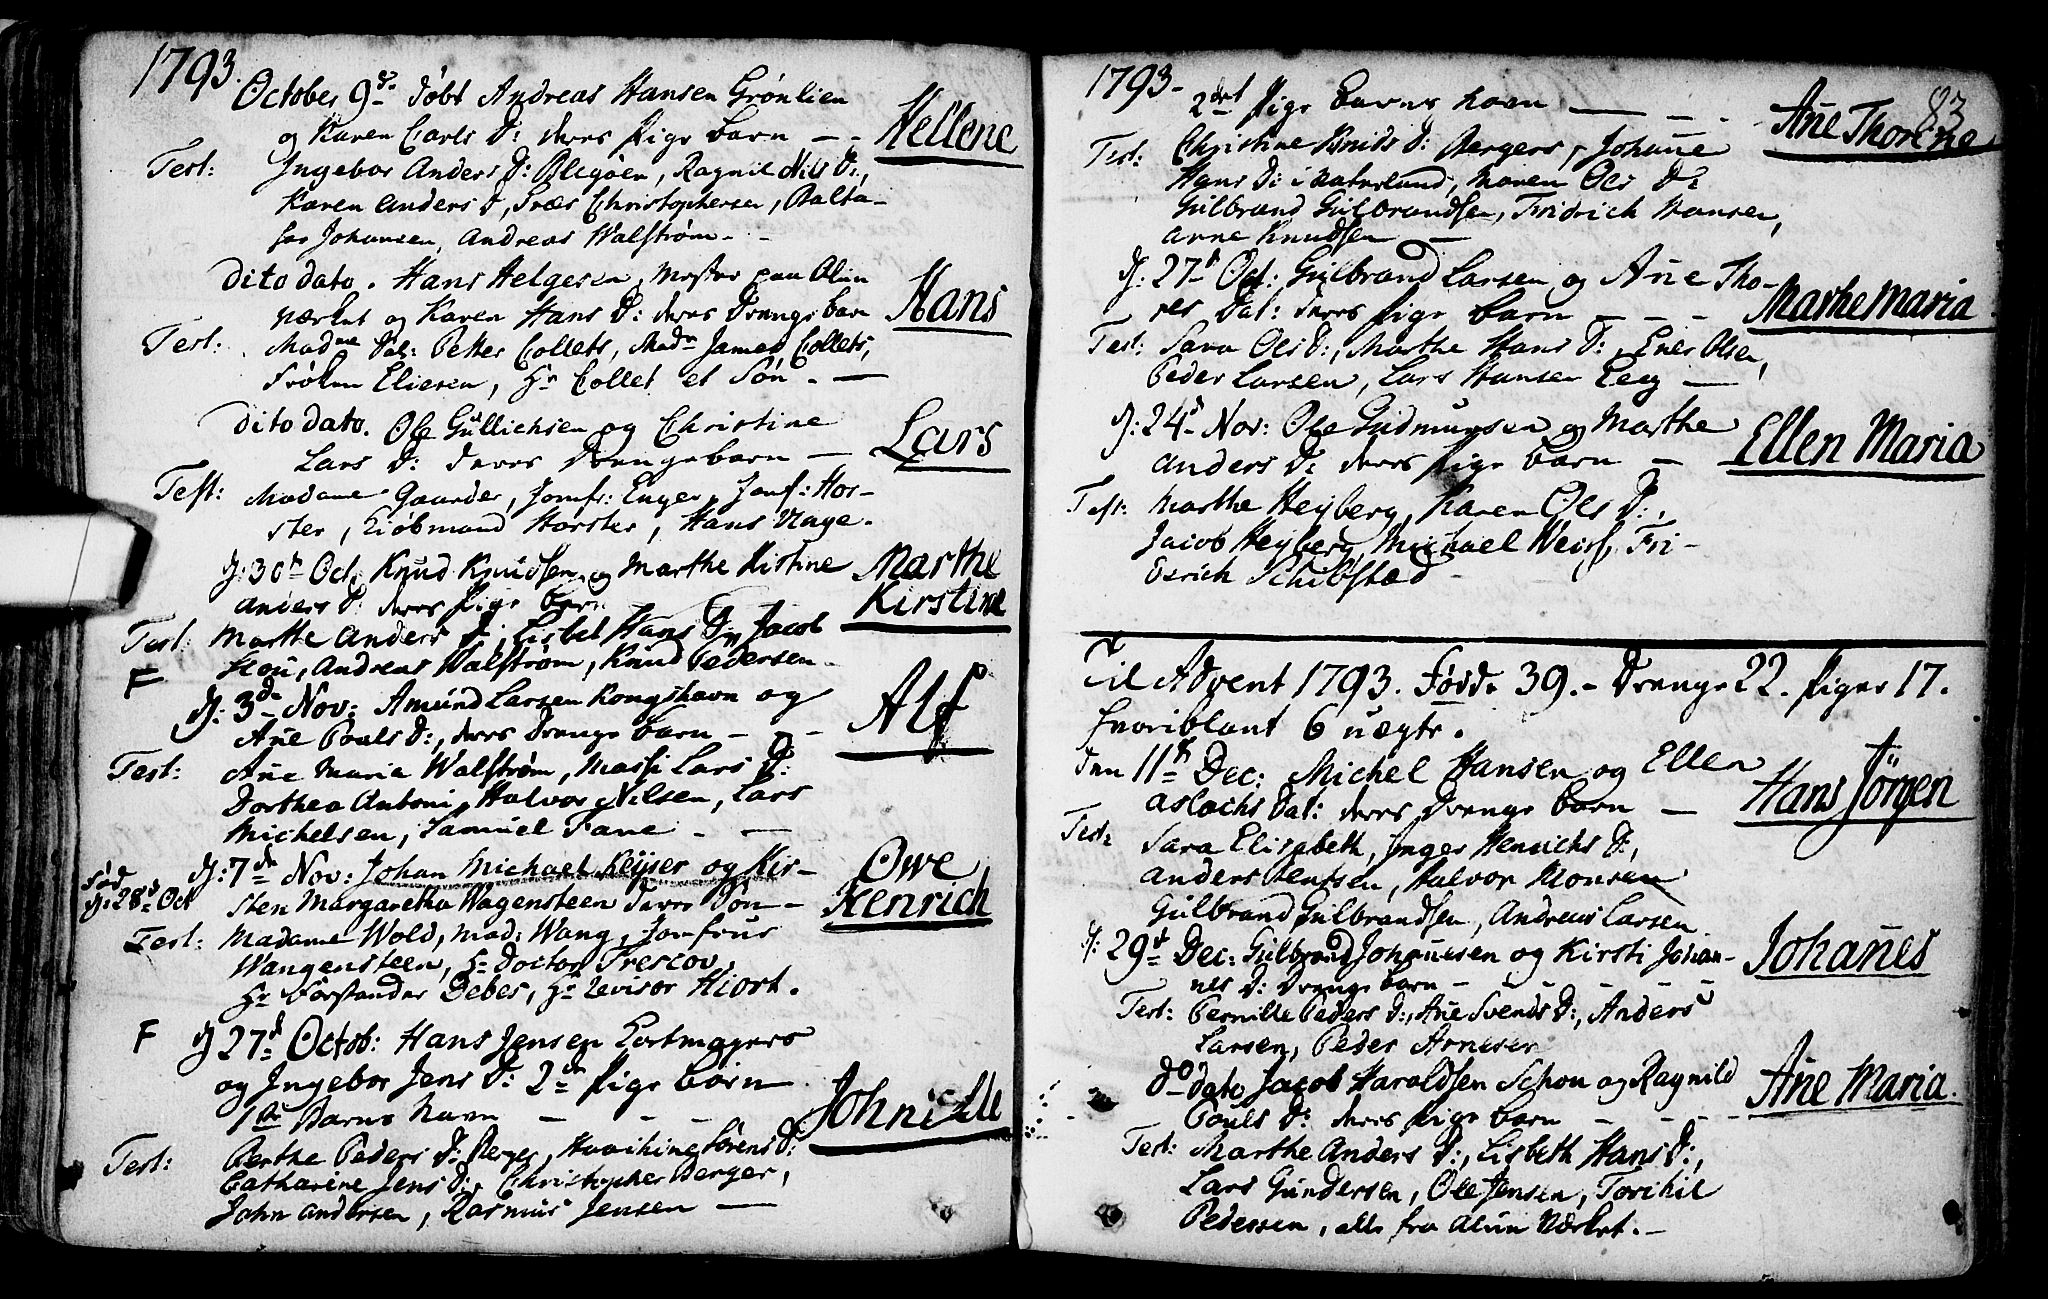 1793.
October 9de døbt Andreas Hansen Grønlien
og Karen Carls D: deres Pige barn — - Hellene
Test: Ingebor Anders D: Ragnil Nils D:,
Karen Anders D, Træs Christophersen, Balta-
sar Johansen, Andreas Walstrøm. -
Dito dato. Hans Helgesen, Mester paa Alun
værket og Karen Hans D: deres Drenge barn Hans
Test: Madme Sal: Petter Collets, Madm James Collets,
Frøken Eliesen, Hr Collet et Søn. —
Dito dato. Ole Gullichsen og Christine
Lars D: deres Drengebarn — Lars
Test: Madame Gaarder, Jomfr: Enger, Jomf: Hor-
ster, Kiøbmand Horster, Hans Hage.
D: 30te Oct. Knud Knudsen og Marthe Kistine Marthe
Anders D: deres Pige barn Kirstine
Test: Marthe Anders D:, Lisbet Hans D, Jacob
Andreas Walstrøm, Knud Pedersen.
F D: 3de Nov: Amund Larsen Kongshavn og
Ane Pouls D:, deres Drenge barn - - - Alf
Test: Ane Maria Walstrøm, Massi Lars D:
Dorthea Antoni, Halvor Nilsen, Lars
Michelsen, Samuel Fane - —
D: 7de Nov: Johan Michael Keyser og Kir- Owe
fød d: 28de Oct sten Margaretha Wagensteen deres Søn - Henrich
Test: Madame Wold, Mad: Wang, Jomfrue
Wangensteen, Hr Doctor Trescov,
Hr Forstander Debes, Hr Revisor Hiort.
F D 27de Octob: Hans Jensen Portmagers
og Ingebor Jens D: 2de Pige børn
1ste Barns Navn — - - Johnille
Test: Berthe Peders D: Berger, Sørens D:
Catharine Jens D:, Christopher Berger,
John Andersen, Rasmus Jensen —
1793- 83
2det Pige Barns Navn — - - Ane Thorine
Test: Christine Knuds D: Bergers, Johane
Hans D: i Waterland, Maren Ols D:
Gulbrand Gulbrandsen, Fridrich Hansen,
Arne Knudsen —
D: 27de Oct: Gulbrand Larsen og Ane Tho-
res Dat: deres Pige barn - - - Marthe Maria
Test: Sara Ols D:, Marthe Hans D:, Enes Olsen,
Peder Larsen, Lars Hansen Eeg —
D: 24de Nov: Ole Gudmunsen og Marthe
Anders D: deres Pige barn — Ellen Maria
Test: Marthe Heyberg, Karen Ols D:,
Jacob Heyberg, Michael Weiss, Fri-
derich Schibstad -
Til Advent 1793. Fødde 39.- Drenge 22. Piger 17.
hvoriblant 6 uægte.
Den 11te Dec: Michel Hansen og Ellen
Aslachs Dat: deres Drenge barn — Hans Jörgen
Test: Sara Elisabeth, Inger Henrichs D:,
Anders Jentsen, Halvor Monsen
Gulbrand Gulbrandsen, Andreas Larsen
D: 29de Dec: Gulbrand Johannesen og Kirsti Johan-
nes D: Drenge barn - - - - Johanes
Test: Pernille Peders D:, Ane Svends D:, Anders
Larsen, Peder Arnesen
Do dato Jacob Haroldsen Schou og Ragnild
Pouls D: deres Pige barn - - - - Ane Maria.
Test: Marthe Anders D:, Lisbeth Hans D:,
Lars Gundersen, Ole Jensen, Torkil
Pedersen, alle fra Alun Værket. -